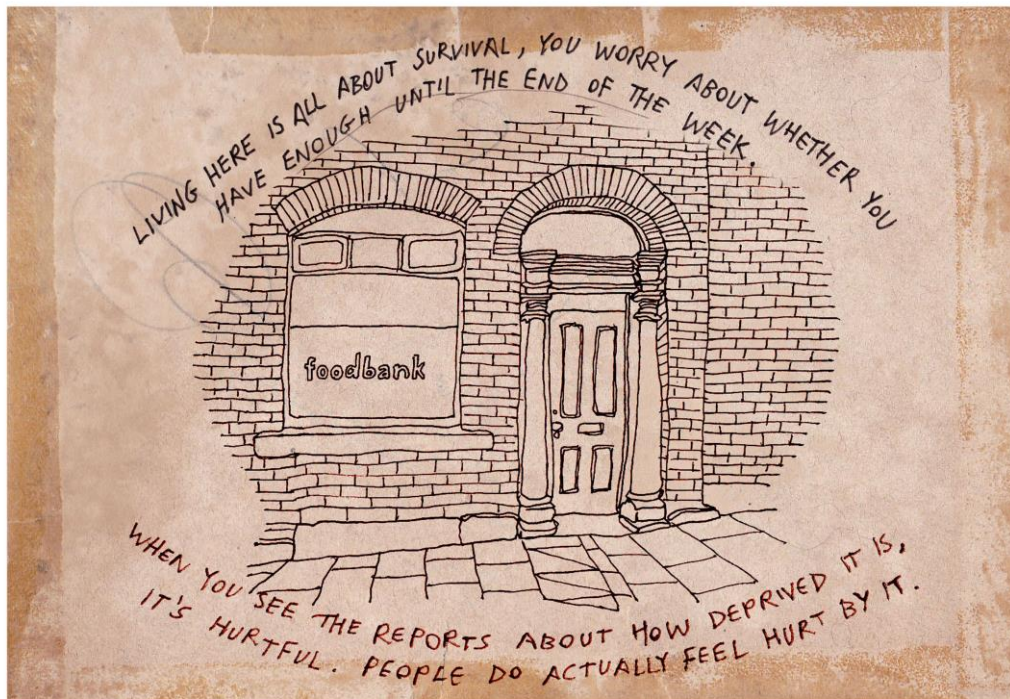 LIVING HERE IS ALL ABOUT SURVIVAL, YOU WORRY ABOUT WHETHER YOU
HAVE ENOUGH UNTIL THE END OF THE WEEK.
foodbank
WHEN YOU SEE THE REPORTS ABOUT HOW DEPRIVED IT IS,
IT'S HURTFUL. PEOPLE DO ACTUALLY FEEL HURT BY IT.